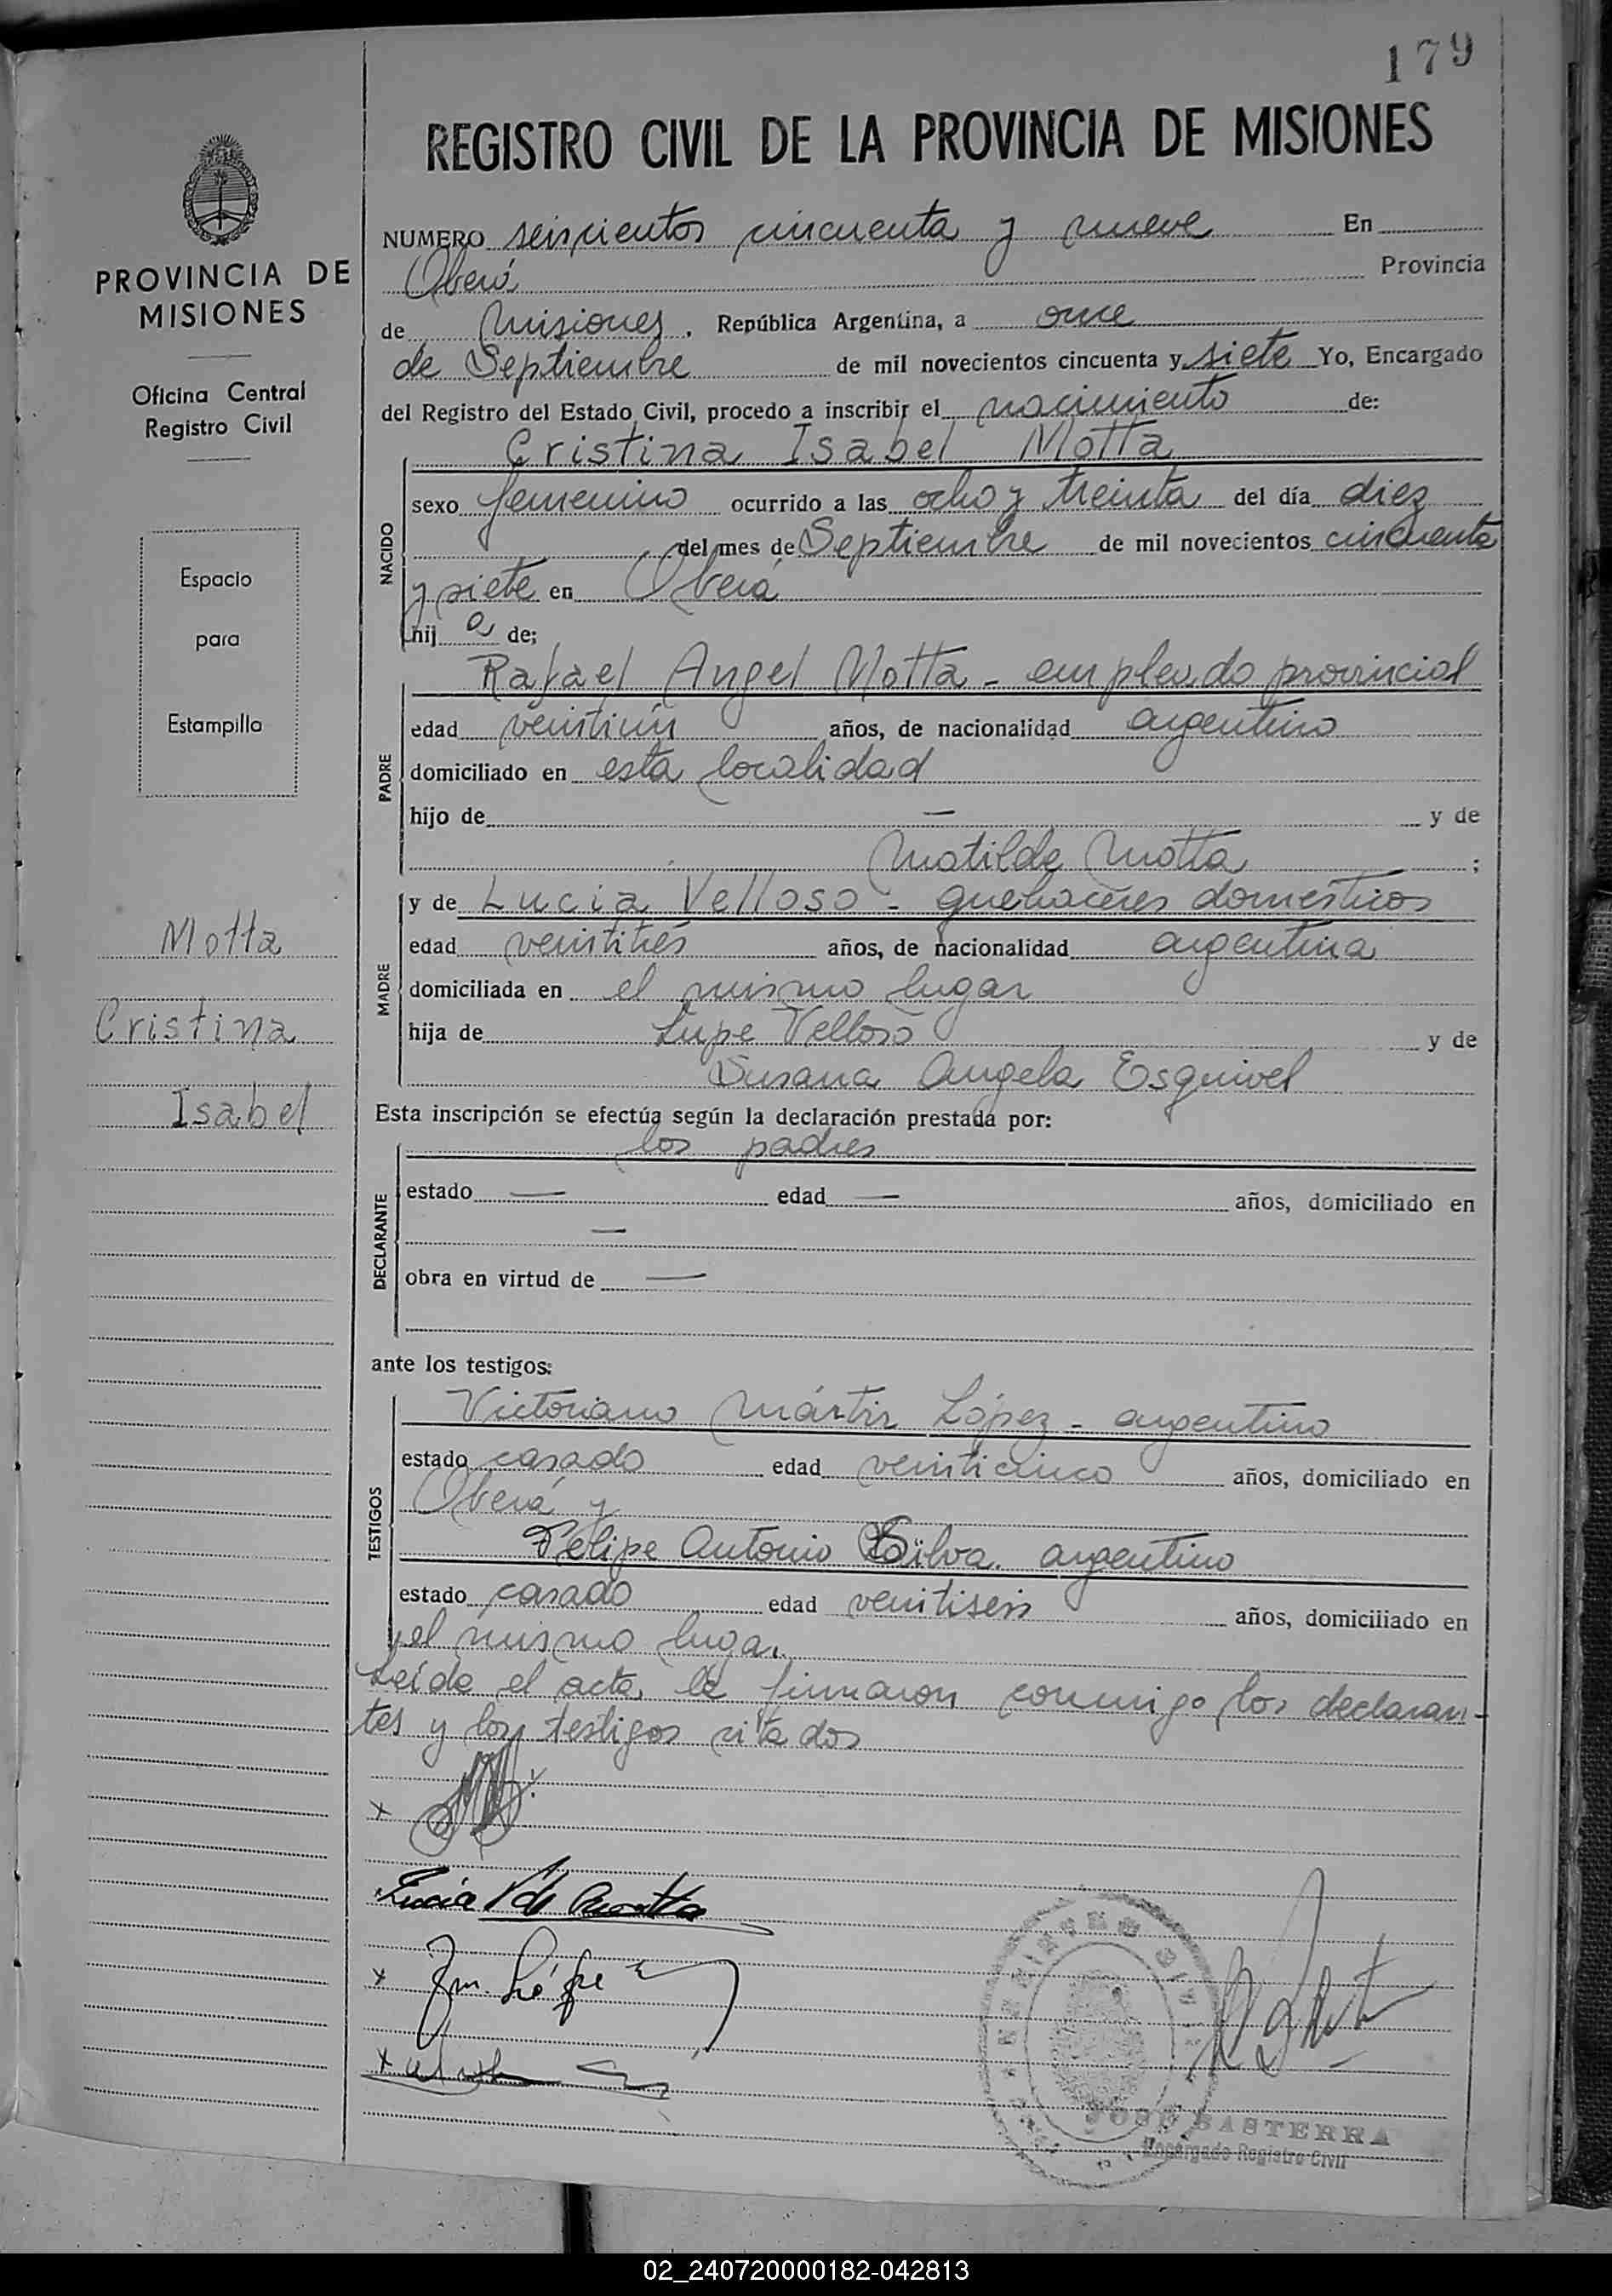 179
REGISTRO CIVIL DE LA PROVINCIA DE MISIONES
PROVINCIA DE
MISIONES
Oficina Central
Registro Civil
Espacio
para
Estampilla
Motta
Cristina
Isabel
NUMERO seiscientos cincuenta y nueve En
Oberá Provincia
de Misiones, República Argentina, a once
de Septiembre de mil novecientos cincuenta y siete Yo, Encargado
del Registro del Estado Civil, procedo a inscribir el nacimiento de:
NACIDO
Cristina Isabel Motta
sexo femenino ocurrido a las ocho y treinta del día diez
del mes de Septiembre de mil novecientos cincuenta
y siete en Oberá
hij a de;
PADRE
Rafael Angel Motta - empleado provincial
edad veintiún años, de nacionalidad argentino
domiciliado en esta localidad
hijo de — y de
Matilde Motta ;
MADRE
y de Lucia Velloso - quehaceres domésticos
edad veintitrés años, de nacionalidad argentina
domiciliada en el mismo lugar
hija de Lupe Velloso y de
Susana Angela Esquivel
Esta inscripción se efectúa según la declaración prestada por:
los padres
DECLARANTE
estado — edad — años, domiciliado en
—
obra en virtud de —
ante los testigos:
TESTIGOS
Victoriano Mártir López - argentino
estado casado edad veinticinco años, domiciliado en
Oberá y
Felipe Antonio Silva. argentino
estado casado edad veintiseis años, domiciliado en
el mismo lugar.
Leída el acta, la firmaron conmigo los declaran-
tes y los testigos citados
x
Lucia V de Motta
x
x
REGISTRO CIVIL
JOSÉ BASTERRA
Encargado Registro Civil
02_240720000182-042813